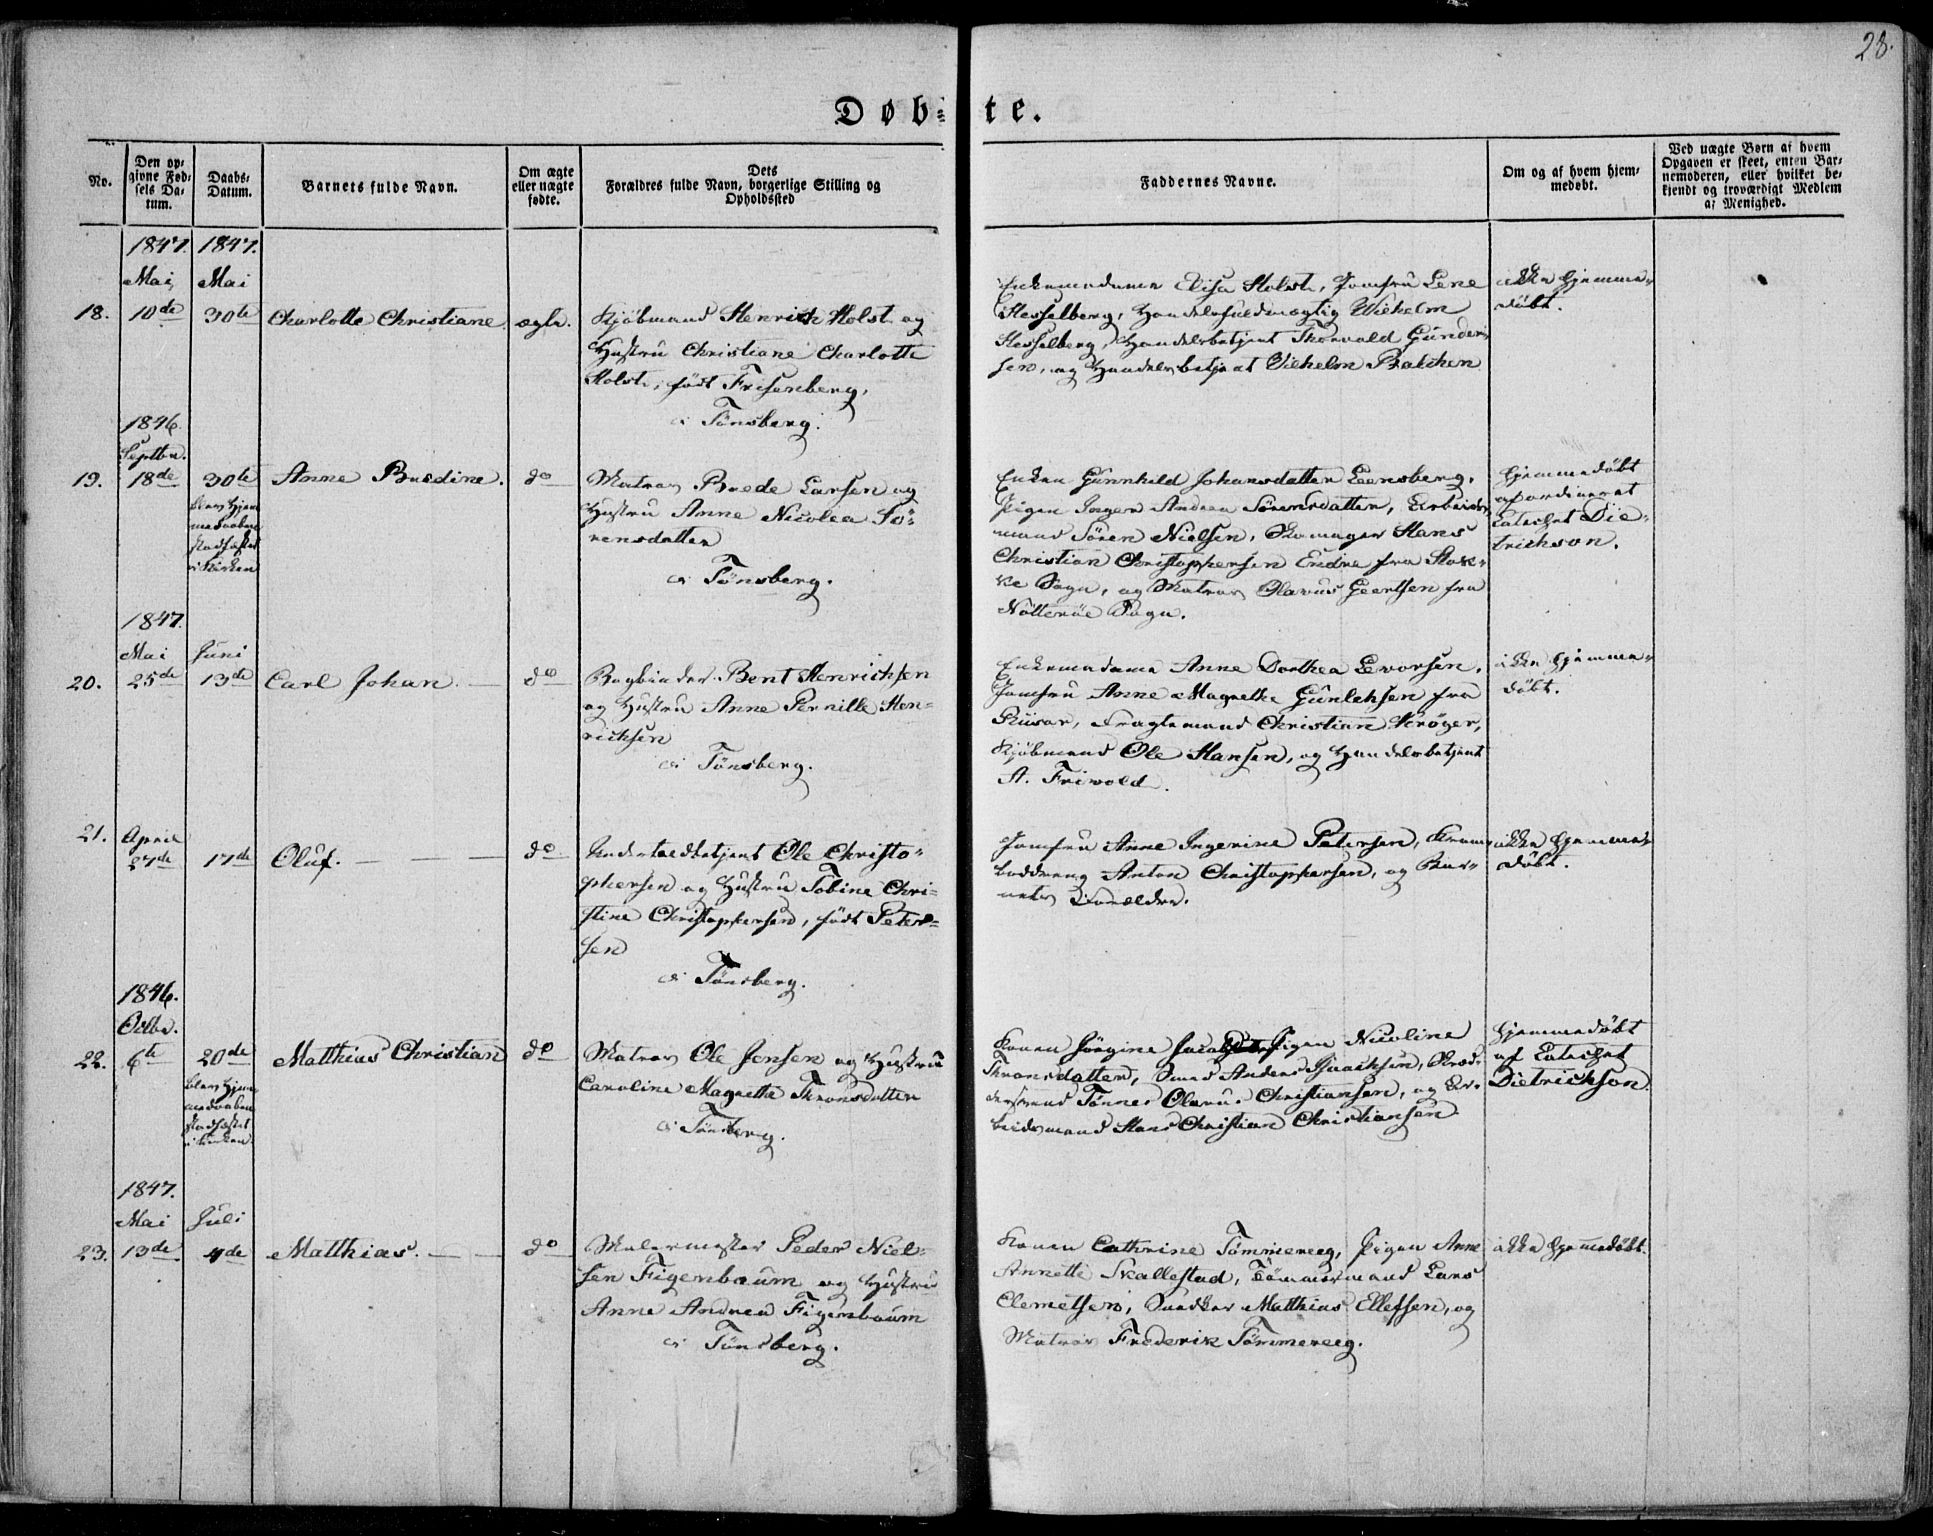 28.
Døb= te.
No.
Den op=
givne Fød=
sels Da=
tum.
Daabs=
Datum.
Barnets fulde Navn.
Om ægte
eller uægte
fødte.
Dets
Forældres fulde Navn, borgerlige Stilling og
Opholdssted
Faddernes Navne.
Om og af hvem hjem=
medøbt.
Ved uægte Børn af hvem
Opgaven er skeet, enten Bar=
nemoderen, eller hvilket be=
kjendt og troværdigt Medlem
af Menighed.
1847. 1847.
Mai, Mai
18. 10de 30te Charlotte Christiane ægte.
Kjøbmand Henrich Holst og
Hustru Christiane Charlotte
Holst, født Fresenberg,
i Tönsberg.
Enkemadame Elisa Holst, Jomfru Lene
Hesselberg, Handelsfuldmægtig Wilhelm
Hesselberg, Handelsbetjent Thorvald Gunder-
sen, og Handelsbetjent Vilhelm Batchen
ikke hjemme-
døbt.
1846.
Septbr.
19. 18de 30te Anne Bredine. do
blev hjem
medaaben
stadfæstet
i Kirken
Matros Brede Larsen og
Hustru Anne Nicolea Sö-
rensdatter
i Tönsberg.
Enken Gunnhild Johansdatter Leensberg,
Pigen Inger Andrea Sörensdatter, Arbeids-
mand Sören Nielsen, Skomager Hans
Christian Christophersen Endre fra Stok-
ke Sogn, og Matros Olavus Geertsen fra
Nötteröe Sogn.
Hjemmedøbt
af ordineret
Catechet Die-
trichson.
1847.
Mai Juni
20. 25de 13de Carl Johan. do
Bogbinder Bent Henrichsen
og Hustru Anne Pernille Hen-
richsen
i Tönsberg.
Enkemadame Anne Dorthea Evorsen,
Jomfru Anne Magrethe Gunlehsen fra
Riisør, Fragtemand Christian Kröger,
Kjøbmand Ole Hansen, og Handelsbetjent
A. Friwold.
ikke hjemme-
døbt.
21. April
27de 17de Oluf. do
Undertoldbetjent Ole Christo-
phersen og Hustru Tobine Chri-
stine Christophersen, født Peter-
sen
i Tönsberg.
Jomfru Anne Ingerine Petersen, Kram-
boddreng Anton Christophersen, og Bar-
nets Forældre.
ikke hjemme-
døbt.
1846.
Octbr.
22. 6te 20de Matthias Christian do
blev hjem
medaaben
stadfæstet
i Kirken
Matros Ole Jensen og Hustru
Caroline Magrethe Thronsdatter
i Tönsberg.
Konen Jörgine Pigen Nicoline
Thronsdatter, Smed Anders Isaachsen,
Tönnes Olavus Christiansen, og Ar-
beidsmand Hans Christian Christiansen.
Hjemmedøbt
af Catechet
Dietrichson.
1847.
Mai Juli
23. 13de 4de Matthias. do
Malermester Peder Niel-
sen Figenbaum og Hustru
Anne Andrea Figenbaum
i Tönsberg.
Konen Cathrine Tömmereeg, Pigen Anne
Annette Skallestad, Tömmermand Lars
Clemetsen, Snedker Matthias Ellefsen, og
Matros Frederik Tömmereeg.
ikke hjemmedøbt.